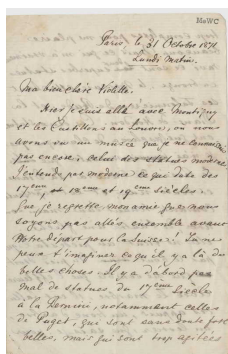 MsWC
Paris le 31 Octobre 1871
Lundi matin.
Ma bien chère Violette.
Hier je suis allé avec Montigny
et les Castillons au Louvre, où nous
avons vu un musée que je ne connaissais
pas encore, celui des statues modernes
J'entends par moderne ce qui date des
17ème et 18ème et 19ème siècles.
Que je regrette, mon ame que nous ne
soyons pas allés ensemble avant
notre depart pour la Suisse! Tu ne
peux t'imaginer ce qu'il y a là de
belles choses. Il y a d'abord pas
mal de statues du 17ème siècles
à la Bernin, notamment celles
de Puget, qui sont sans doute fort
belles, mais qui sont trop agitées